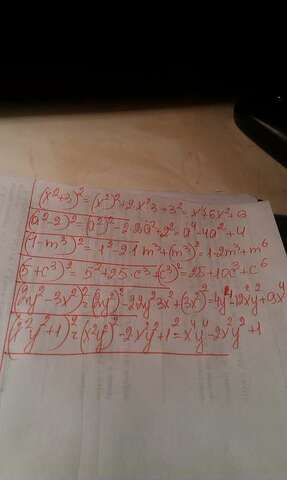 (x²+3)² = (x²)²+2x²3+3² = x⁴+6x²+9
(a²-2)² = (a²)²-2·2a²+2² = a⁴-4a²+4
(1-m³)² = 1²-2·1·m³+(m³)² = 1-2m³+m⁶
(5+c³)² = 5²+2·5·c³+(c³)² = 25+10c³+c⁶
(2y²-3x²)² = (2y²)²-2·2y²3x²+(3x²)² = 4y⁴-12x²y²+9x⁴
(x²y²+1)² = (x²y²)²-2x²y²+1² = x⁴y⁴-2x²y²+1